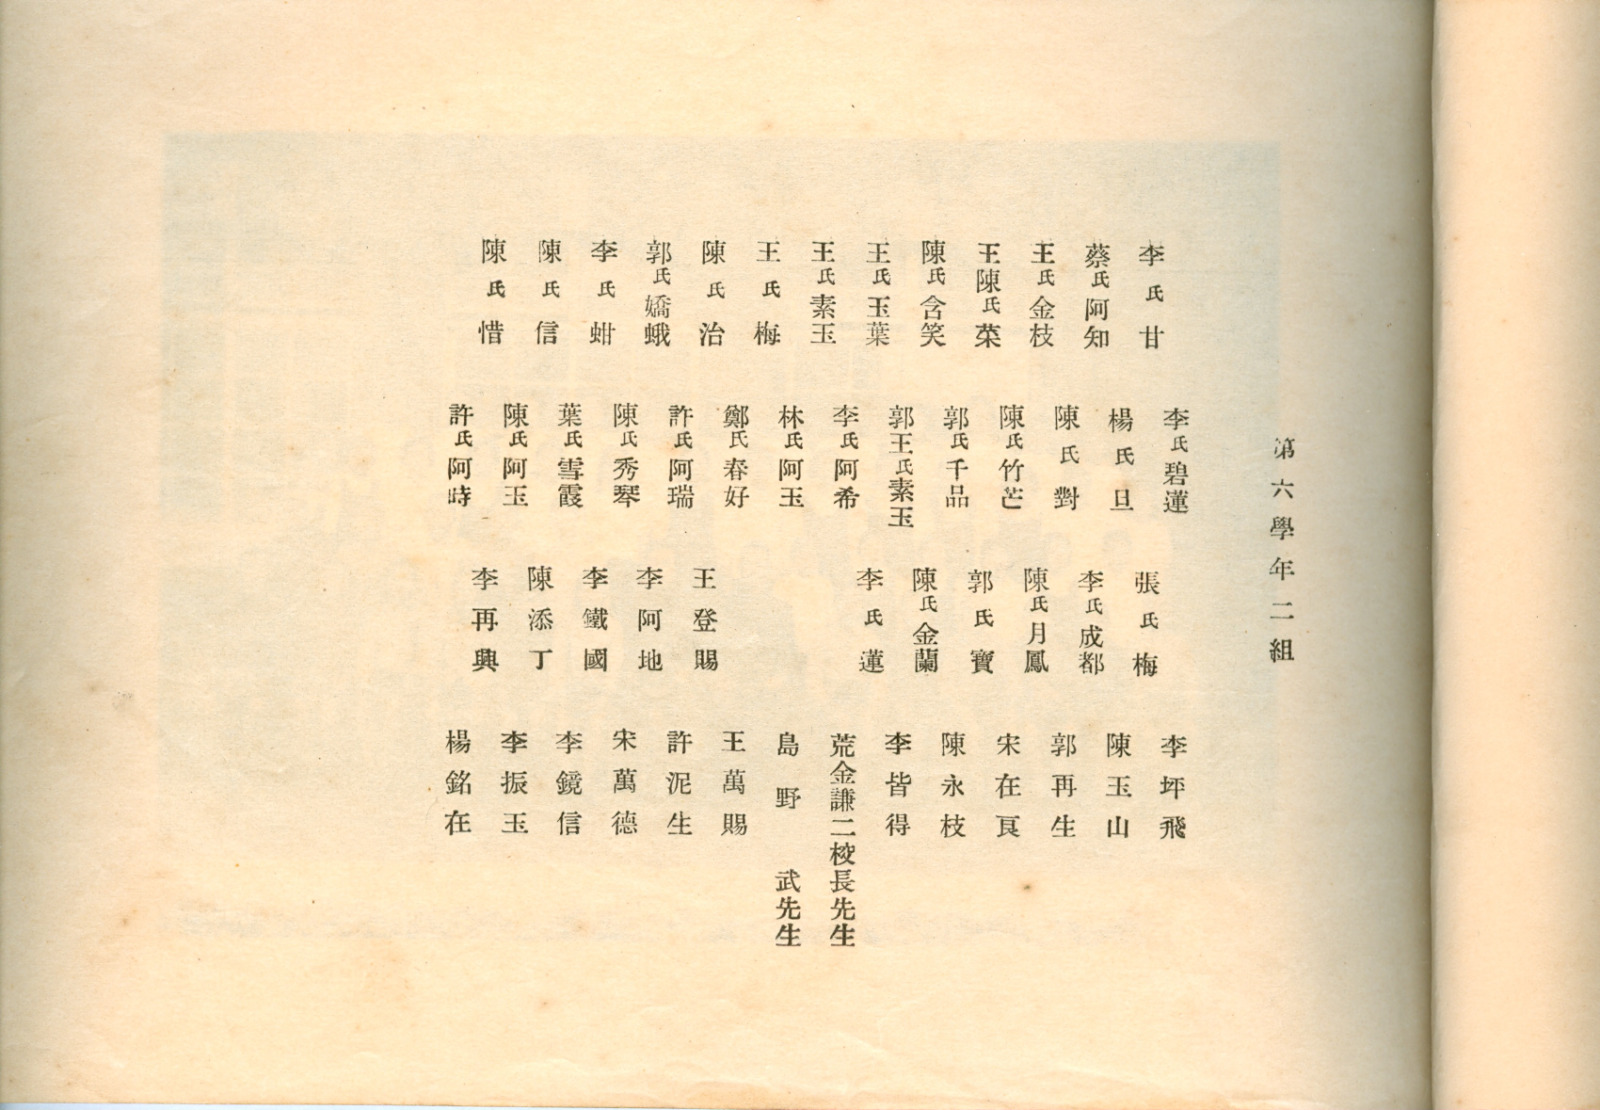 第六學年二組
李氏甘
蔡氏阿知
王氏金枝
王陳氏菜
陳氏含笑
王氏玉葉
王氏素玉
王氏梅
陳氏治
郭氏嬌蛾
李氏蚶
陳氏信
陳氏惜
李氏碧蓮
楊氏旦
陳氏對
陳氏竹芒
郭氏千品
郭王氏素玉
李氏阿希
林氏阿玉
鄭氏春好
許氏阿瑞
陳氏秀琴
葉氏雪霞
陳氏阿玉
許氏阿時
張氏梅
李氏成都
陳氏月鳳
郭氏寶
陳氏金蘭
李氏蓮
王登賜
李阿地
李鐵國
陳添丁
李再興
李坪飛
陳玉山
郭再生
宋在良
陳永枝
李皆得
荒金謙二校長先生
島野武先生
王萬賜
許泥生
宋萬德
李鏡信
李振玉
楊銘在